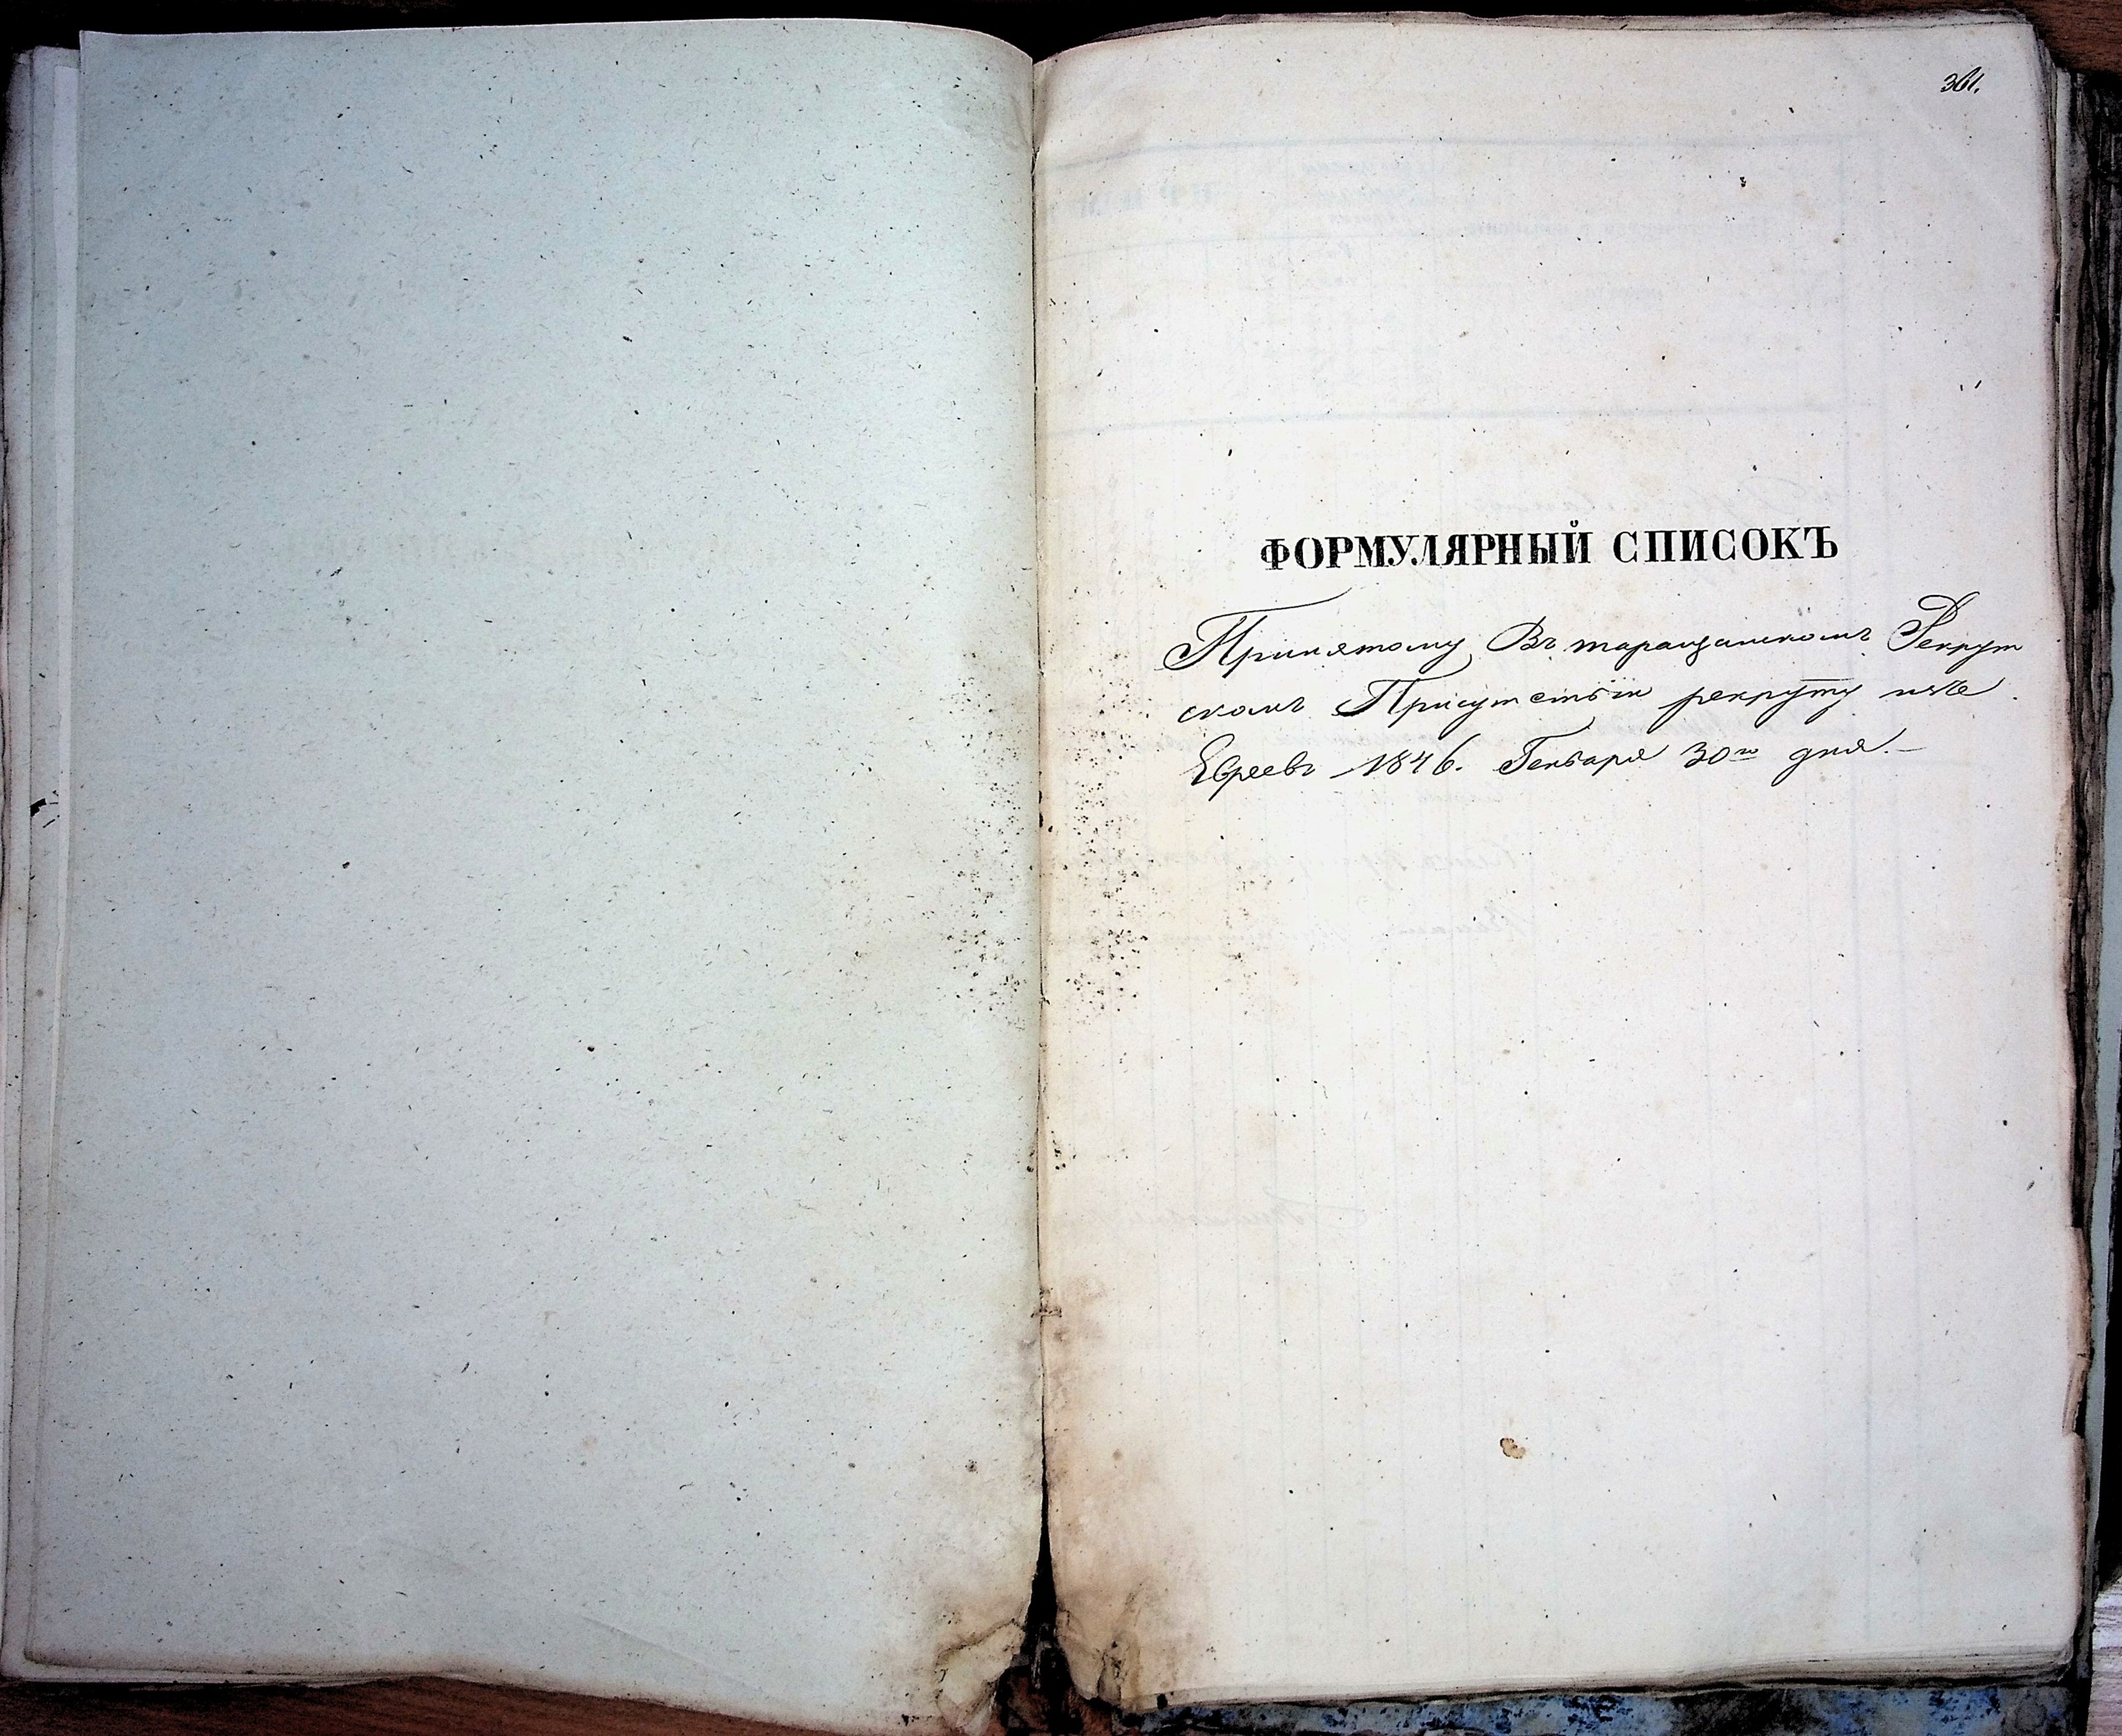 361.
ФОРМУЛЯРНЫЙ СПИСОКЪ
Принятому Въ таращанскомъ Рекрут
скомъ Присутствіи рекруту изъ
Евреевъ 1846. Генваря 30го дня.-